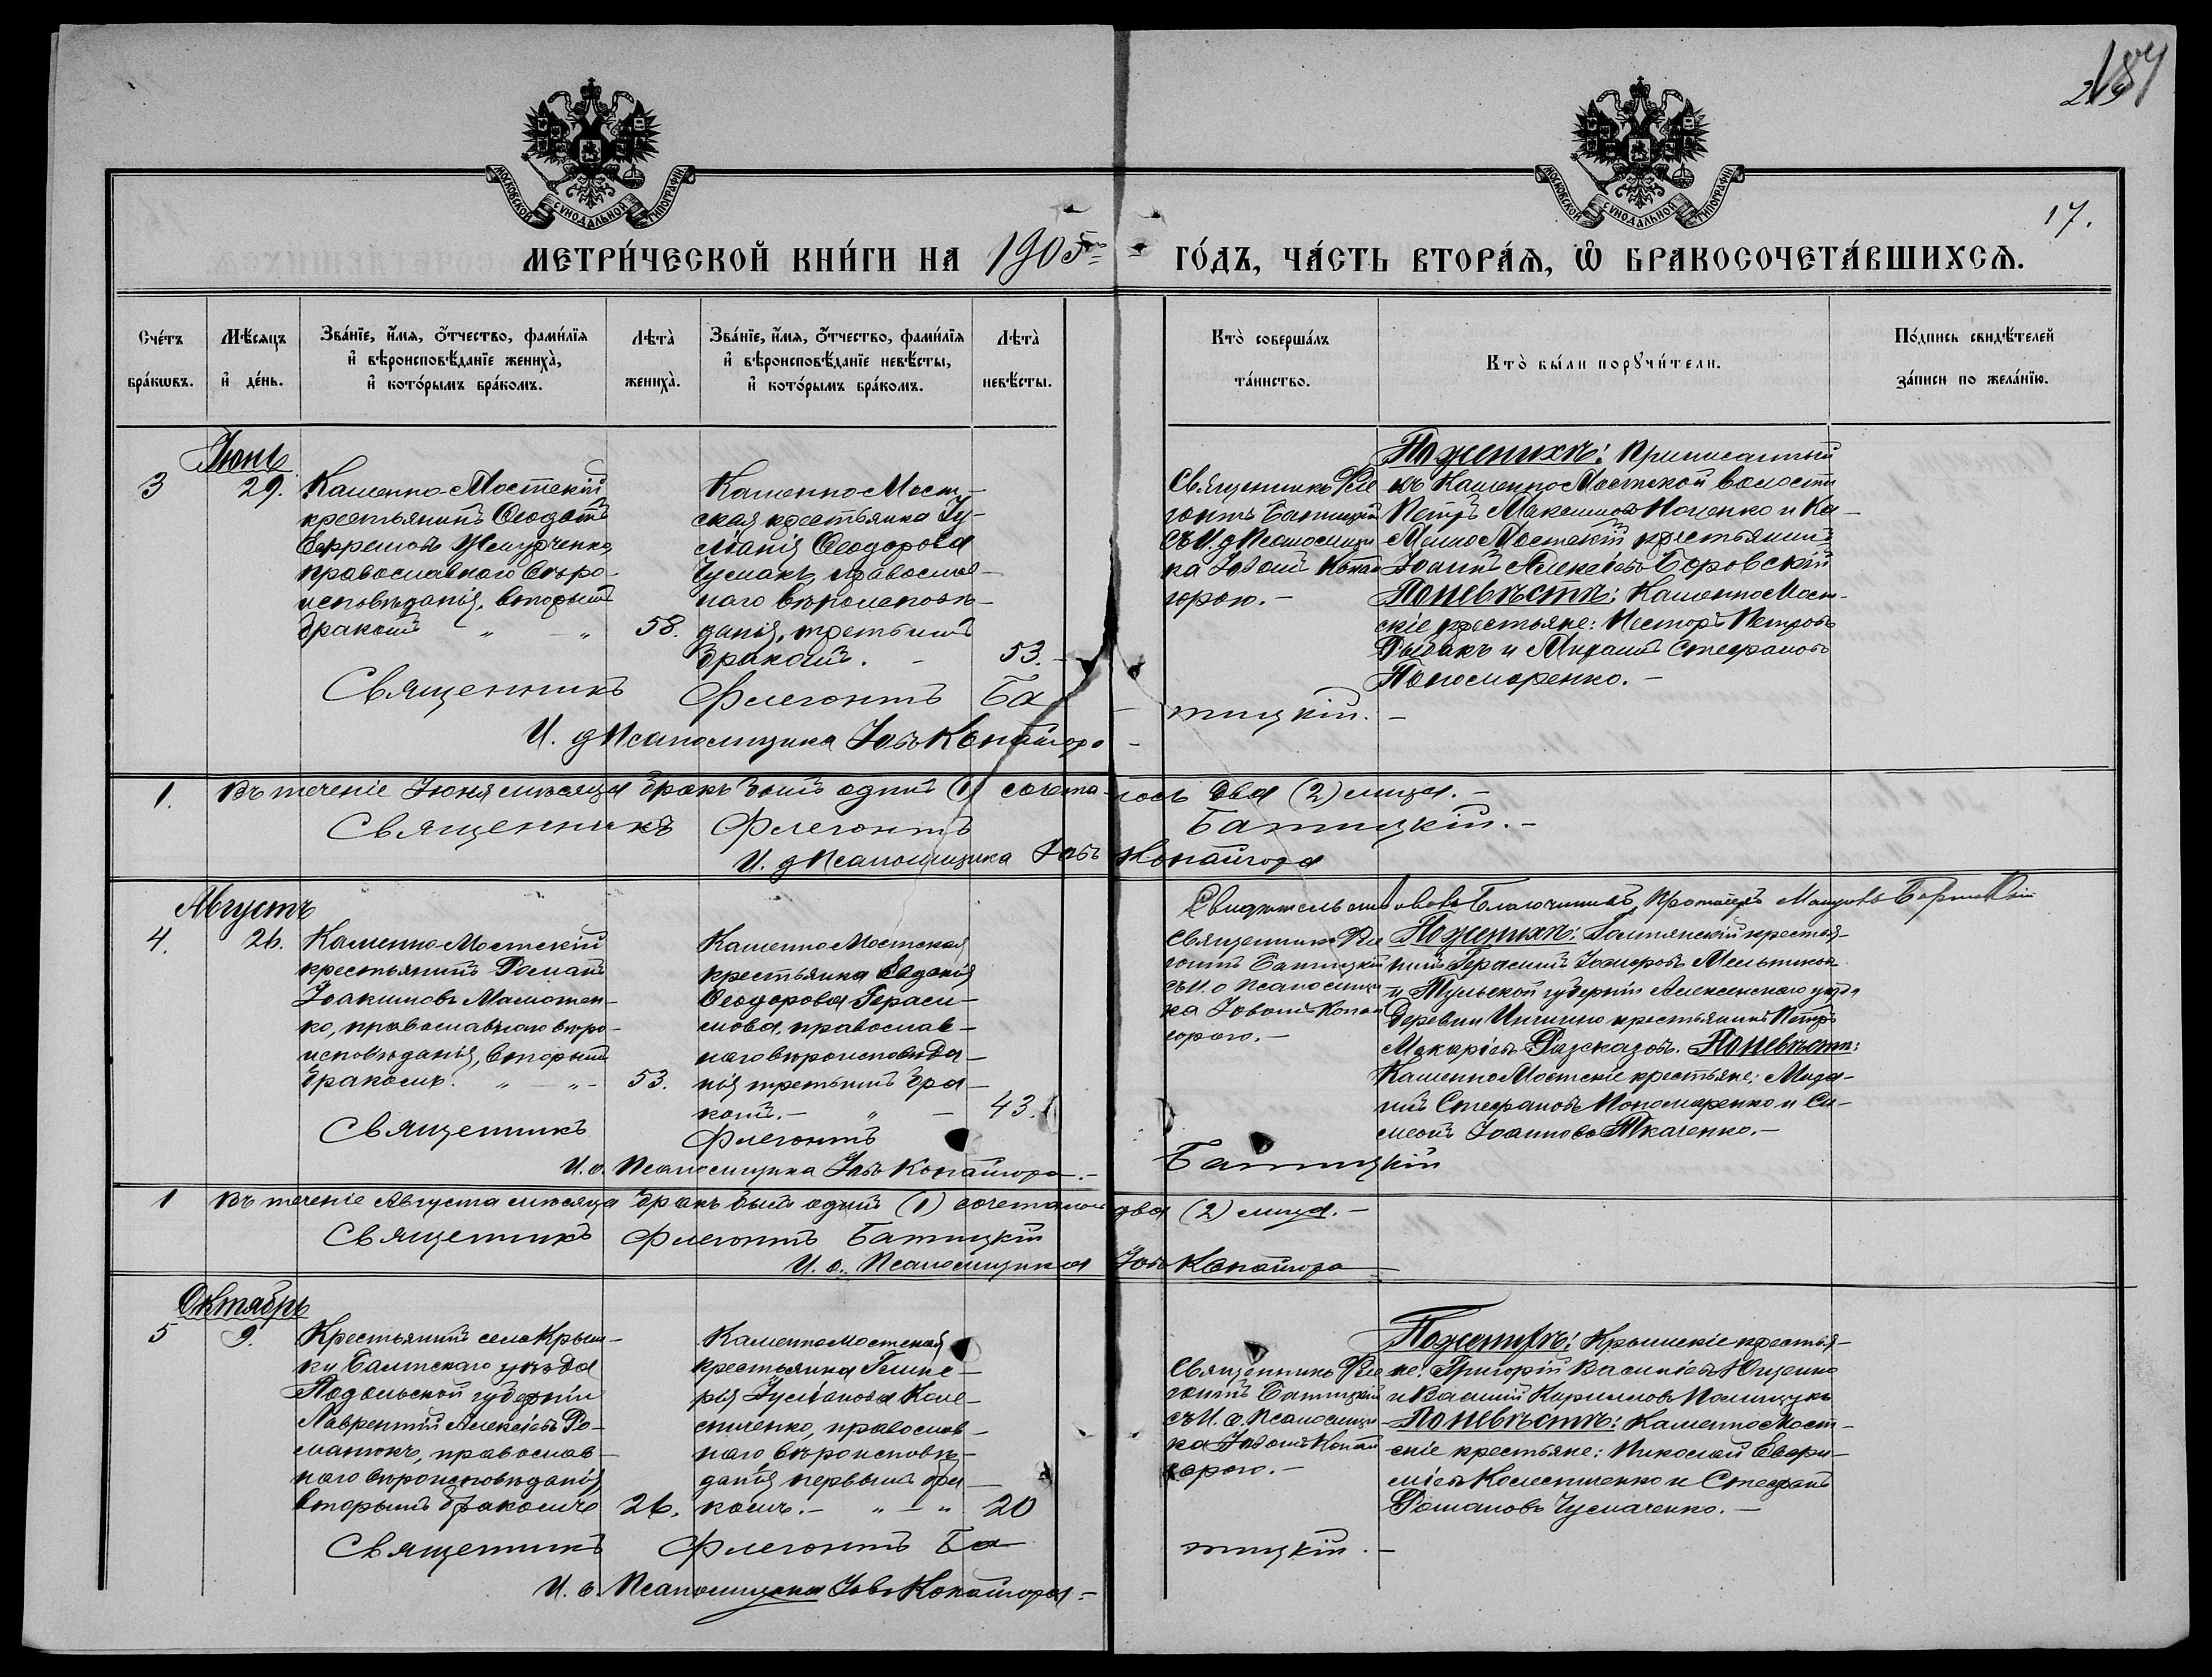 187
219
МОСКОВСКОЙ СѴНОДАЛЬНОЙ ТИПОГРАФІИ
МОСКОВСКОЙ СѴНОДАЛЬНОЙ ТИПОГРАФІИ
17.
МЕТРИ́ЧЕСКОЙ КНИ́ГИ НА 1905 ГО́ДЪ, ЧА́СТЬ ВТОРА́Ѧ, Ѡ҆ БРАКОСОЧЕТА́ВШИХСѦ.
Сче́тъ бра́кѡвъ.
Мѣ́сяцъ и҆ де́нь.
Зва́нїе, и҆́мя, ѻ҆́тчество, фами́лїя
и҆ вѣроисповѣ́данїе жениха̀,
и҆ кото́рымъ бра́комъ.
Лѣта̀ жениха̀.
Зва́нїе, и҆́мя, ѻ҆́тчество, фами́лїя
и҆ вѣроисповѣ́данїе невѣ́сты,
и҆ кото́рымъ бра́комъ.
Лѣта̀ невѣ́сты.
Кто̀ соверша́лъ та́инство.
Кто̀ бы́ли порꙋчи́тели.
По́дпись свидѣ́телей за́писи по жела́нїю.
Іюнь
3
29.
Каменно-Мостскій
крестьянинъ Ѳеодотъ
Ефремовъ
православнаго вѣро-
исповѣданія, вторымъ
бракомъ " — "
58.
Каменно Мост-
ская крестьянка Іу-
ліанія Ѳеодорова
Чумакъ, православ-
наго вѣроисповѣ-
данія, третьимъ
бракомъ. -
53.
Священникъ Фле
гонтъ Батицкій
съ И. д Псаломщи
ка Іовомъ Копай
горою. -
По женихѣ: Приписанный
къ Каменно Мостской волости
Петръ Максимовъ Ноценко и Ка-
менно Мостскій крестьянинъ
Іоаннъ Алексѣевъ Боровскій
По невѣстѣ: Каменно Мост-
скіе крестьяне: Несторъ Петровъ
Рыбакъ и Михаилъ Стефановъ
Пономаренко. -
Священникъ Флегонтъ Ба - тицкій. -
И. д Псаломщика Іовъ Копайгоро -
1. Въ теченіе Іюня мѣсяца бракъ былъ одинъ (1) сочета-лось два (2) лица. -
Священникъ Флегонтъ Батицкій. -
И. д Псаломщика Іовъ Копайгора
Августъ
Свидѣтельствовалъ Благочинный, Протоіерей
4.
26.
Каменно-Мостскій
крестьянинъ Романъ
Іоакимовъ Мамотен-
ко, православнаго вѣро-
исповѣданія, вторымъ
бракомъ. " — " -
53.
Каменно Мостская
крестьянка Евдокія
Ѳеодорова Гераси-
мова, православ-
наго вѣроисповѣда-
нія третьимъ бра-
комъ. - " -
43.
Священникъ Фле
гонтъ Батицкій
съ И. о Псаломщи
ка Іовомъ Копай
горою. -
По женихѣ: Голтянскій крестья-
нинъ Герасимъ Іосифовъ Мельников
и Тульской губерніи Алексинского уѣзда
деревни крестьянинъ Петръ
Макаріевъ Разсказовъ. По невѣстѣ:
Каменно Мостскіе крестьяне: Миха-
илъ Стефановъ Пономаренко и Си-
меонъ Іоанновъ Ткаченко. -
Священникъ Флегонтъ Батицкій
И. о. Псаломщика Іовъ Копайгора. -
1 Въ теченіе Августа мѣсяца бракъ былъ одинъ (1) сочеталось два (2) лица. -
Священникъ Флегонтъ Батицкій
И. о. Псаломщика Іовъ Копайгора
Октябрь
5
9.
Крестьянинъ села Крым-
ки Балтскаго уѣзда
Подольской губерніи
Лаврентій Алексѣевъ Ро-
манюкъ, православ-
наго вѣроисповѣданія
вторымъ бракомъ
26.
Каменно Мостская
крестьянка Глике-
рія Іуліанова Коле-
сниченко, православ-
наго вѣроисповѣ-
данія первымъ бра-
комъ. - " — "
20
Священникъ Фле
гонтъ Батицкій
съ И. о. Псаломщи
ка Іовомъ Копай
горою. -
По женихѣ: Крымскіе крестья-
не: Григорій Василіевъ Ющенко
и Василій Кирилловъ Полищукъ
По невѣстѣ: Каменно Мост-
скіе крестьяне: Николай Евфи-
міевъ Колесниченко и Стефанъ
Романовъ Чумаченко. -
Священникъ Флегонтъ Ба тицкій. -
И. о. Псаломщика Іовъ Копайгора. -